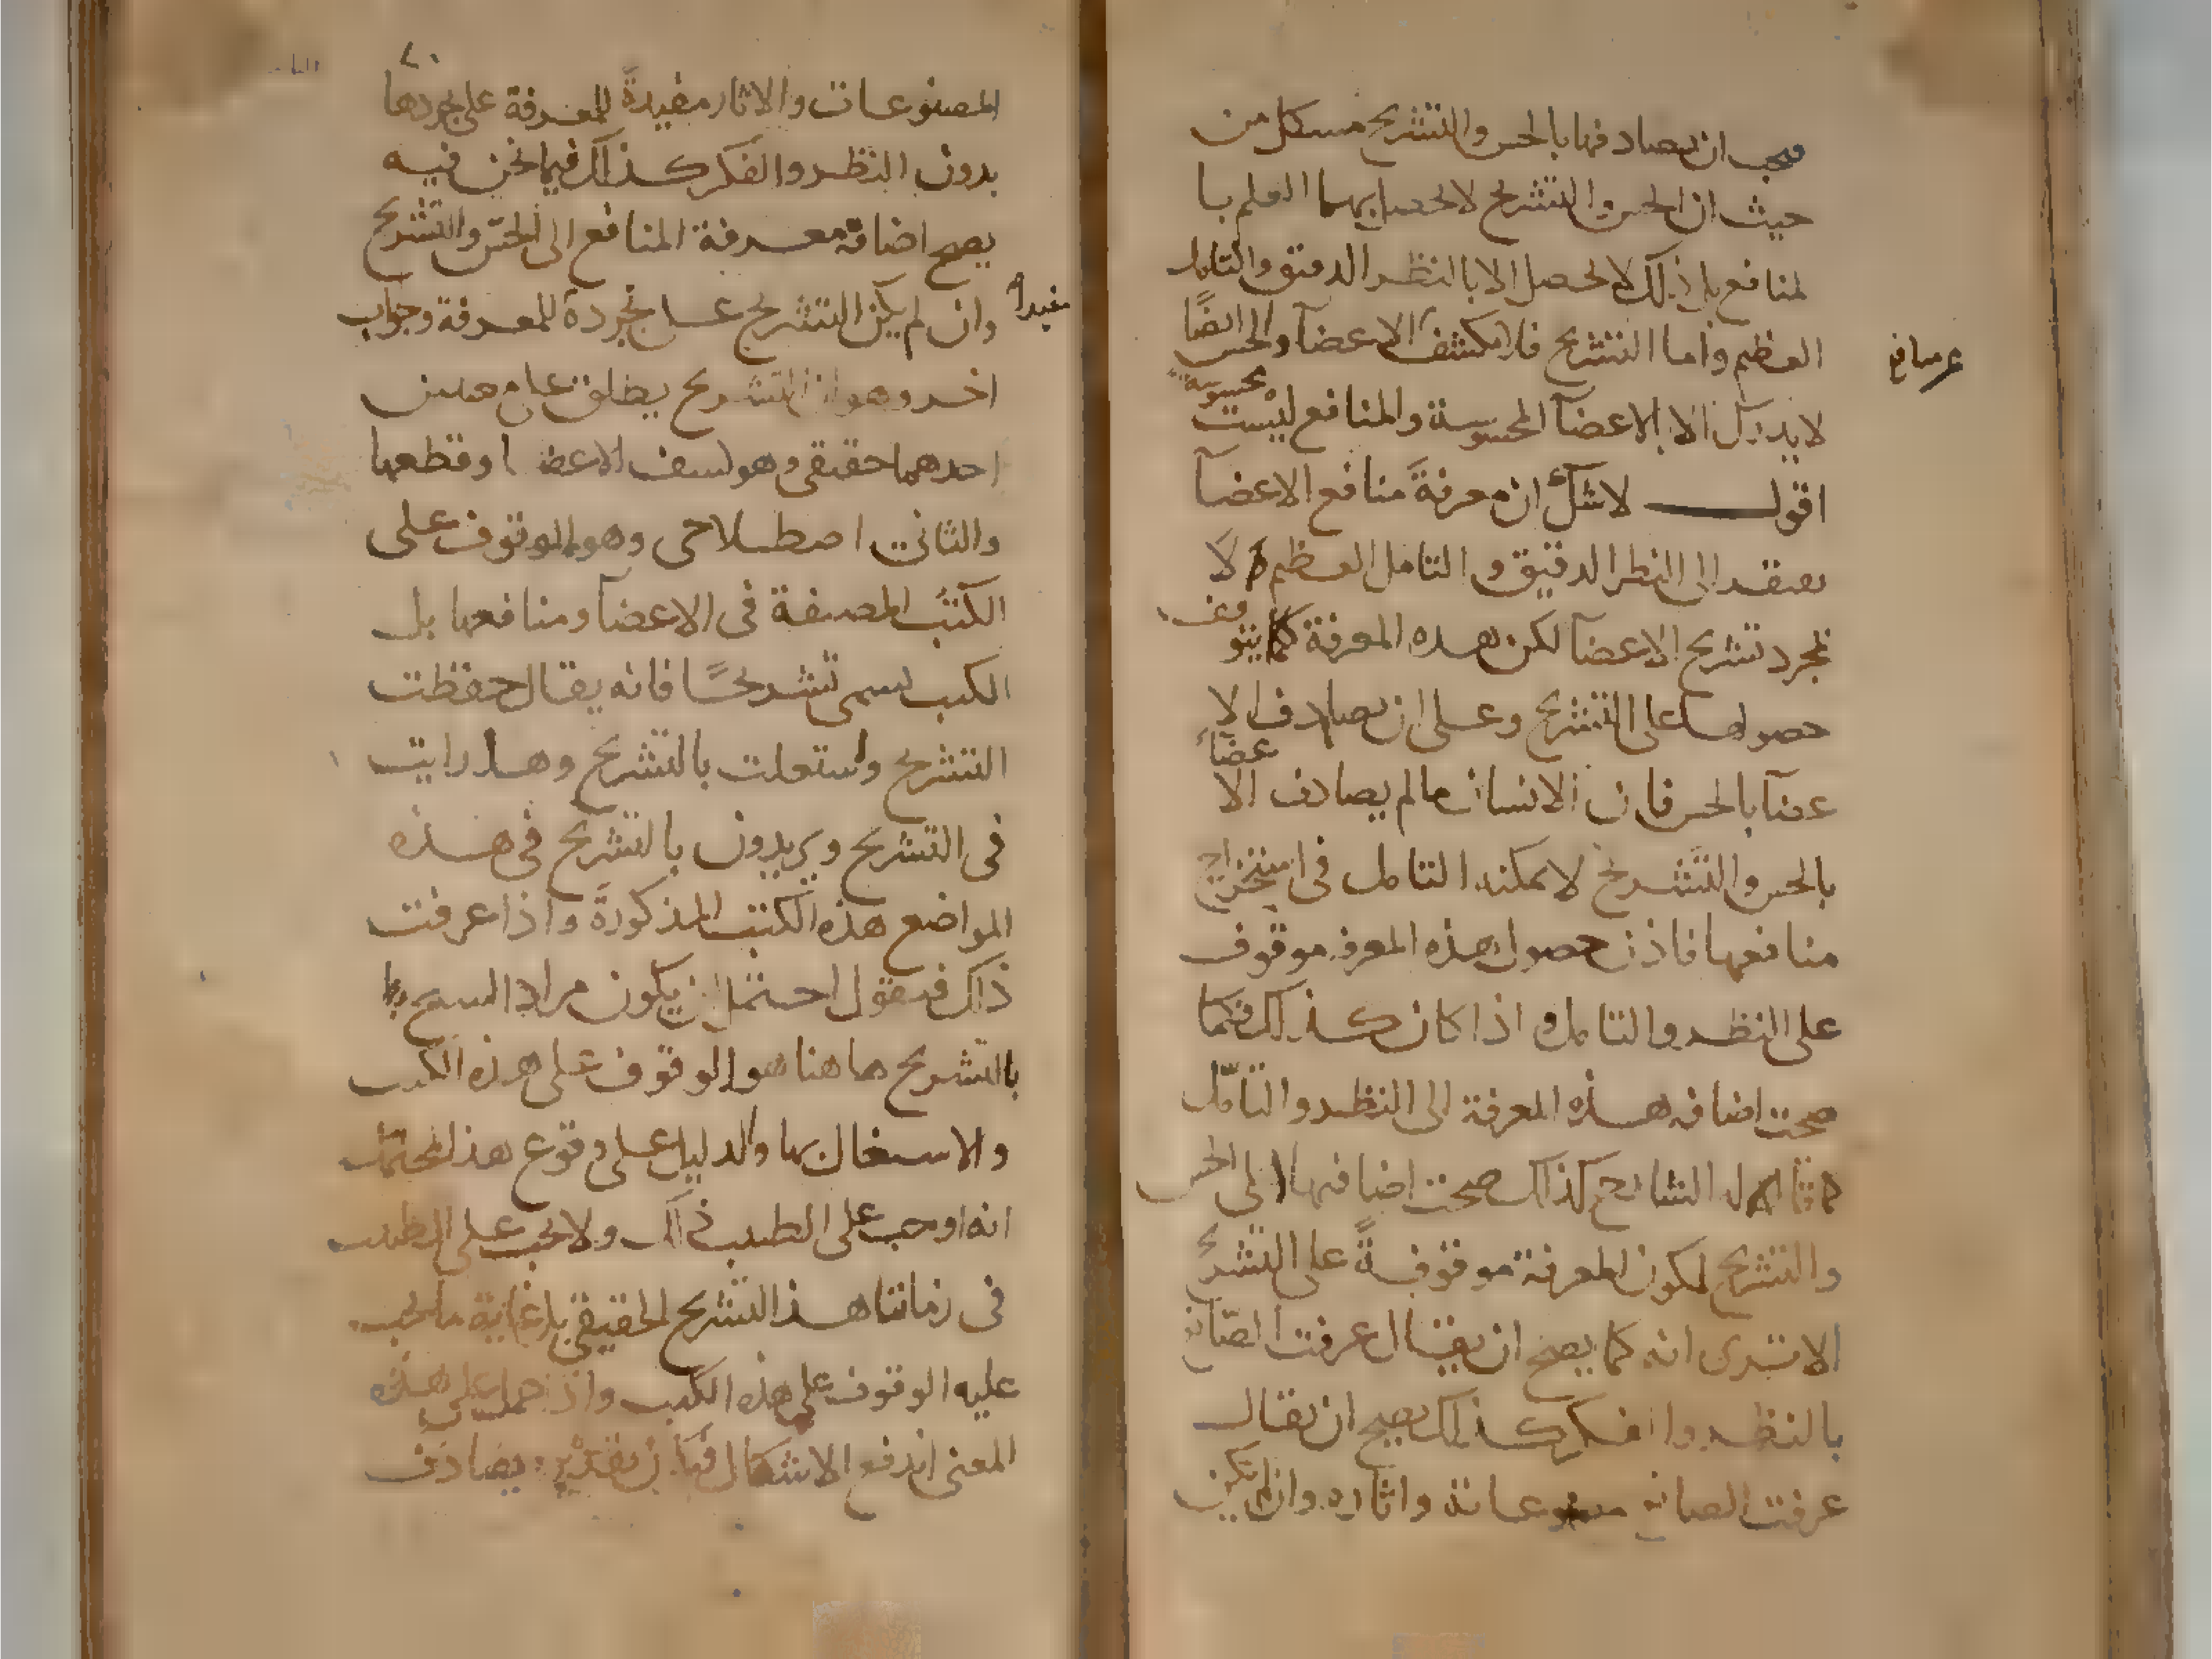 فيجب ان يصادفها بالحس والتشريح مشكل من
حيث ان الحس والتشريح لا يحصل بهما العلم با
لمنافع بل ذلك لا يحصل الا بالنظر الدقيق والتامل
العظيم واما التشريح فلا يكشف الا عضآ والحس ايضًا
عن منافع
لا يدرك الا الاعضآ المحسوسة والمنافع ليست محسوسة
اقول لا شك ان معرفة منافع الاعضآ
يفتقد الى النظر الدقيق والتامل العظيم لا
بمجرد تشريح الاعضآ لكن هذه المعرفة كما يتوقف
حصولها على التشريح وعلى ان يصادف الا
عضآ بالحس فان الانسان ما لم يصادف الا عضآء
بالحس والتشريح لا يمكنه التامل فى استخراج
منافعها فاذن حصول هذه المعرفة موقوف
على النظر والتامل و اذا كان كذلك فكما
صحت اضافه هذه المعرفة الى النظر والتامّل
كذلك صحت اضافتها الى الحس
والتشريح لكون المعرفة موقوفةً على التشريح
الا ترى انه كما يصح ان يقال عرفت الصّانع
بالنظر والفكر كذلك يصح ان يقال
عرفت الصانع مصنوعاته واثاره وان لم يكن
المصنوعات والاثار مفيدةً للمعرفة على مجردها
بدون النظر والفكر كذلك فيما نحن فيه
يصح اضافة معرفة المنافع الى الحسّ والتشريح
وان لم يكن التشريح على مجردة للمعرفة وجواب
مفيداً
اخر وهو ان التشريح يطلق على معنيين
احدهما حقيقى وهو كشف الاعضا وقطعها
والثانى اصطلاحى وهو الوقوف على
الكتب المصنفة فى الاعضآ ومنافعها بل
الكتب تسمى تشريحًا فانه يقال حفظت
التشريح واشتغلت بالتشريح وهل رايت
فى التشريح ويريدون بالتشريح فى هذه
المواضع هذه الكتب المذكورة واذا عرفت
ذلك فنقول احتمل ان يكون مراد الشيخ
بالتشريح هاهنا هو الوقوف على هذه الكتب
والاشتغال بها والدليل على وقوع هذا المحتمل
انه اوجب على الطبيب ذلك ولا يجب على الطبيب
فى زماننا هذا التشريح الحقيقى بل غاية ما يجب
عليه الوقوف على هذه الكتب واذا حمل على هذه
المعنى اندفع الاشكال يصادف